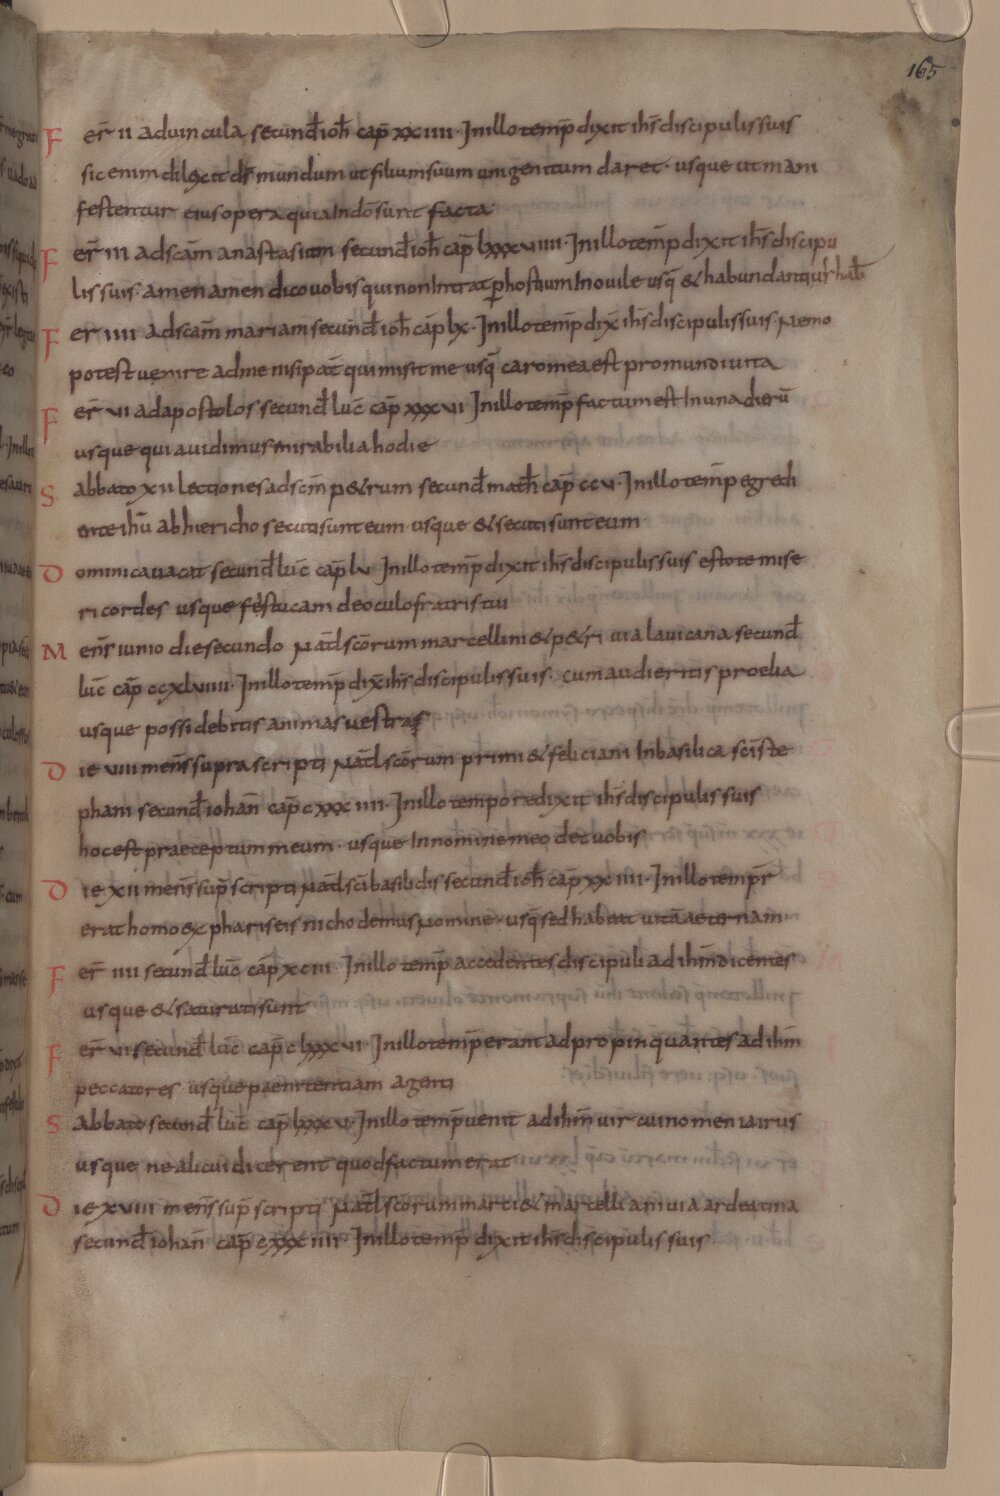 165
Fer̄ ii aduincula secund̄ ioh̄ cap̄ xxiiii · Inillotemp̄ dixit ih̄s discipulissuis
sicenim dilexit d̄s mundum ut filiumsuum unigenitum daret · usque ut mani
festentur eiusopera quia Indōsunt facta
Fer̄ iii adscām anastasium secund̄ ioh̄ cap̄ lxxxviiii · Inillotemp̄ dixit ih̄s discipu
lis suis · amen amen dico uobis qui non Intrat ꝑ hostium Inouile usq̄ & habundantius hab̄
Fer iiii adscām mariam secund̄ ioh̄ cap̄ lx · Inillotemp̄ dix̄ ih̄s discipulissuis Nemo
potest uenire adme nisi pat̄ qui misit me usq̄ caro mea est promundi uita
Fer̄ vi adapostolos secund̄ luc̄ cap̄ xxxvi · Inillotemp̄ factum est Inuna dierū
usque qui auidimus mirabilia hodie
Sabbato xii lectiones adscm̄ p&rum secund̄ math̄ cap̄ ccv · Inillo temp̄ egredi
ente ih̄u abhiericho secuti sunt eum usque & secuti sunt eum
Dominica uacat secund̄ luc̄ cap̄ lv Inillotemp̄ dixit ih̄s discipulissuis estote mise
ricordes usque festucam deoculo fratris tui
Mens̄ iunio die secundo Nat̄l scōrum marcellini & p&ri uia lauicana secund̄
luc̄ cap̄ ccxlviiii · Inillotemp̄ dix̄ ih̄s discipulissuis cum audieritis proelia
usque possidebitis animas uestras
Die viiii mens̄ supra scripti Nat̄l scōrum primi & feliciani Inbasilica scī ste
phani secund̄ iohan̄ cap̄ cxxxiiii · Inillo tempore dixit ih̄s discipulis suis
hoc est praeceptum meum · usque Innomine meo det uobis
Die xii mens̄ sup̄ scripti Nat̄l scī basilidis secund̄ ioh̄ cap̄ xxiiii · Inillo tempr̄
erat homo ex phariseis nichodemus Nomine · usq̄ sed habeat uitā aeternam
Fer̄ iiii secund̄ luc̄ cap̄ xciii · Inillo temp̄ accedentes discipuli adih̄m dicentes
usque & saturati sunt
Fer̄ vi secund̄ luc̄ cap̄ clxxxvi · Inillotemp̄ erant adpropinquantes adih̄m
peccatores usque paenitentiam agenti
Sabbato secund̄ luc̄ cap̄ lxxxv · Inillo temp̄ uenit adih̄m uir cui nomen iairus
usque ne alicui dicerent quod factum erat
Die xviii mens̄ sup̄ scripti Nat̄l scōrum marci & marcelliani uia ardeatina
secund̄ iohan̄ cap̄ cxxxiiii Inillotemp̄ dixit ih̄s discipulis suis